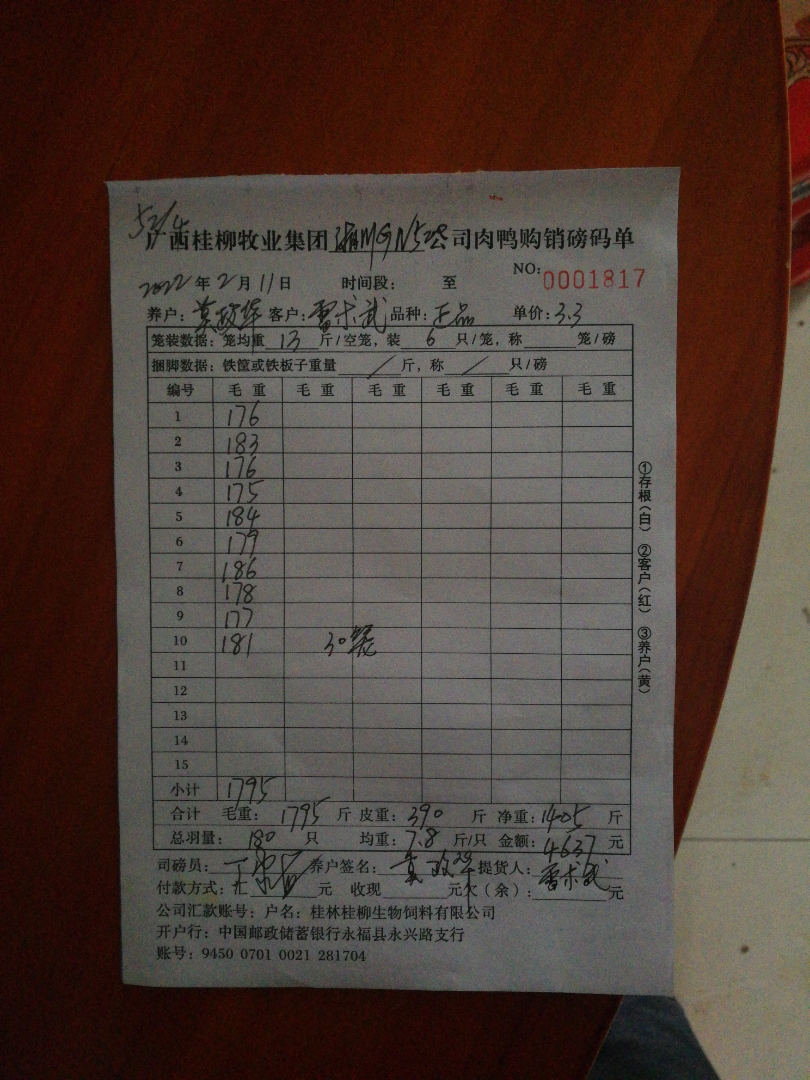 广西桂柳牧业集团 公司肉鸭购销磅码单
2022年2月11日 时间段: 至 NO:0001817
养户:莫政华 客户:雷术武 品种:正品 单价:3.3
笼装数据:笼均重 13 斤/空笼,装 6 只/笼,称 笼/磅
捆脚数据:铁筐或铁板子重量 / 斤,称 / 只/磅
编号 毛重 毛重 毛重 毛重 毛重 毛重
1 176
2 183
3 176
4 175
5 184
6 179
7 186
8 178
9 177
10 181 30笼
11
12
13
14
15
小计 1795
合计 毛重:1795斤 皮重:390斤 净重:1405斤
总羽量:180只 均重:7.8斤/只 金额:4637元
司磅员: 养户签名:莫政华 提货人:雷术武
付款方式:汇 元 收现 元欠(余): 元
公司汇款账号:户名:桂林桂柳生物饲料有限公司
开户行:中国邮政储蓄银行永福县永兴路支行
账号:9450 0701 0021 281704
①存根(白) ②客户(红) ③养户(黄)